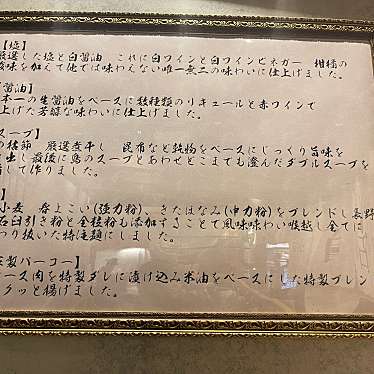 【塩】
選した塩と白醤油 これに白ワインと白ワインビネガー 柑橘の
酸味を加えて他では味わえない唯一無二の味わいに仕上げました。
醤油】
本一の生醤油をベースに数種類のリキュールと赤ワインで
上げた芳醇な味わいに仕上げました。
スープ】
の枯節 厳選煮干し 昆布など乾物をベースにじっくり旨味を
出し最後に鳥のスープとあわせどこまでも澄んだダブルスープを
して作りました。
】
小麦 春よこい(強力粉) きたほなみ(中力粉)をブレンドし長野
石臼引き粉と全粒粉も添加することで風味味わい喉越し全てに
わり抜いた特注麺にしました。
製パーコー】
ース肉を特製ダレに漬け込み米油をベースにした特製ブレン
クッと揚げました。